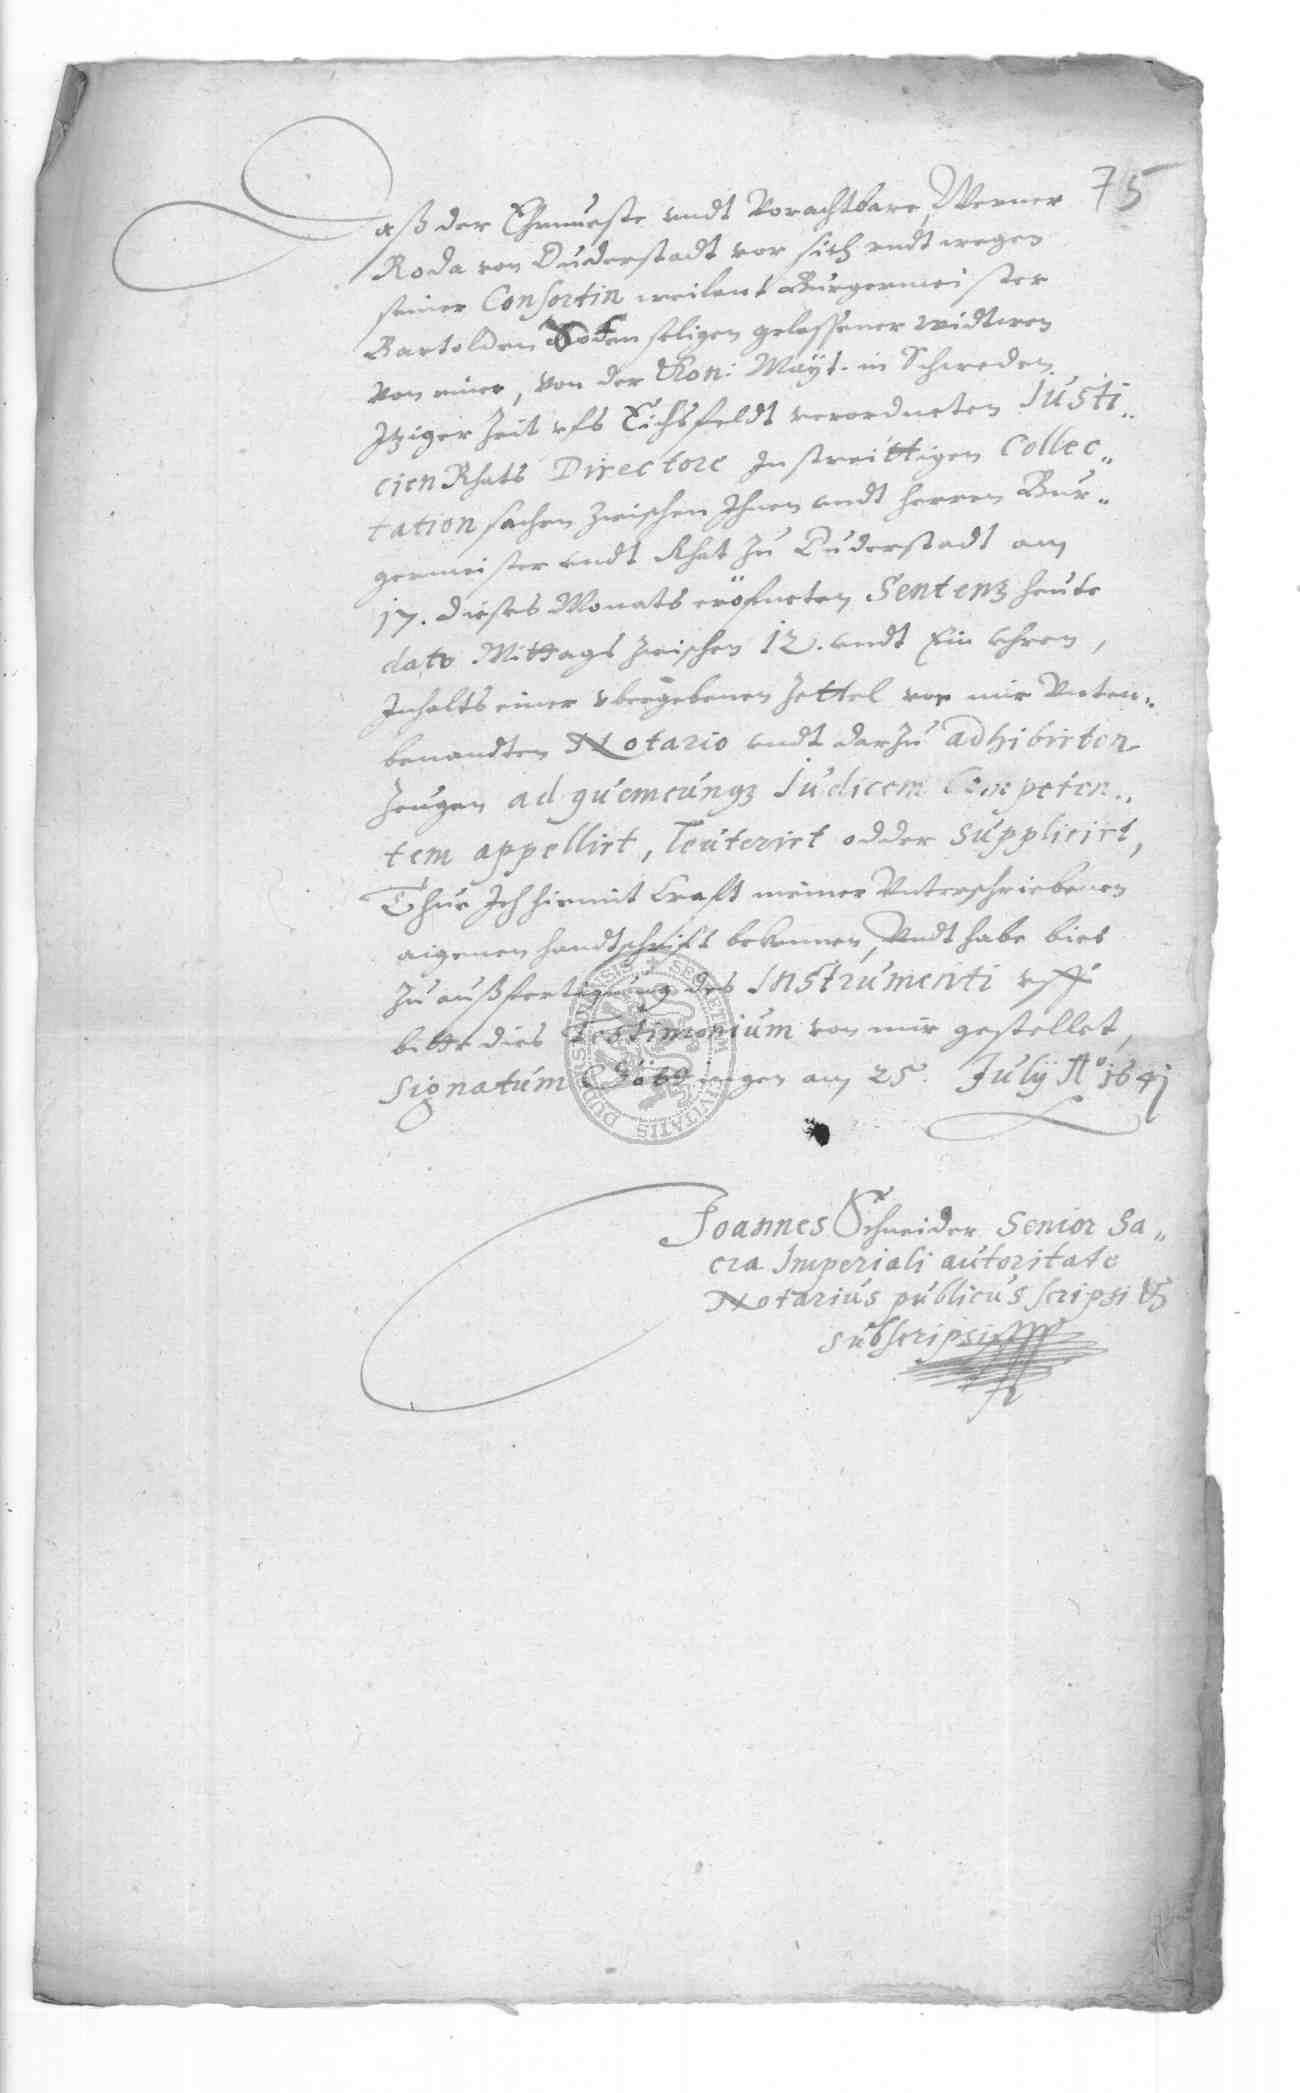 75
Daß der Ehrnueste vndt Vorachtbare, Werner
Roda von Duderstadt vor sich vndt wegen
seiner Consortin weilant Burgermeister
Bartolden seligen gelassener widtwen
von einer, von der Kön: Mayt. in Schweden
Itziger Zeit vfs Eichsfeldt verordneten Justi„
cien Rhats Directore In streittigen Collec„
tation sachen zwischen Ihnen vndt herren Bur„
germeister vndt Rhat zu Duderstadt am
17. dieses Monats eröfneten Sentenz heute
dato Mittags zwischen 12. vndt Ein Vhren,
Inhalts einer vbergebenen Zettel vor mir Vnten„
benandten Notario vndt darzu adhibirten
Zeugen ad quemcunqz Judicem Competen„
tem appellirt, leuterirt odder supplicirt,
Thue Ich hiemit Craft meiner Vnterschriebenen
aigenen handtschrift bekennen, Vndt habe bies
zu außfertigung des Instrumenti vff
bitte dies Testimonium von mir gestellet,
Signatum Göttingen am 25. July Aº 1641
SECRETUM CIVITATIS DUDERSTADENSIS
Joannes Schneider Senior Sa„
cra Imperiali autoritate
Notarius publicus scripsi &
subscripsi